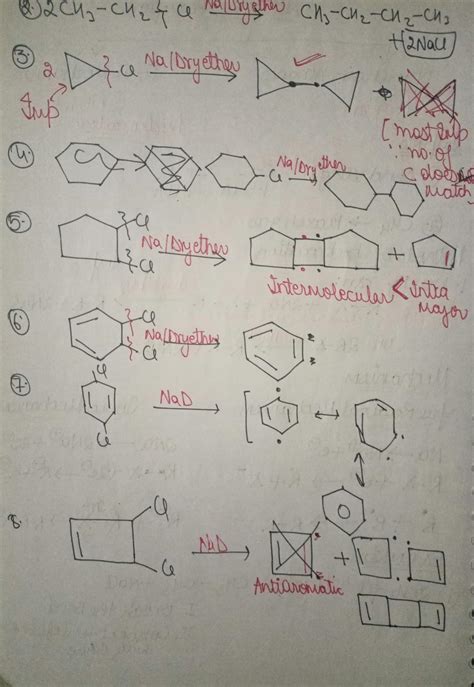 2. 2CH₃-CH₂ Cl Na/Dryether CH₃-CH₂-CH₂-CH₃
+2NaCl
3
2 Cl Na/Dryether ✓ +
Imp
[most Imp
∵ no. of
C
match]
4. Cl Na/Dryether
5. Cl
Cl Na/Dryether +
Intermolecular < intra
major
6 Cl
Cl Na/Dryether
7. Cl
Cl NaD
8. Cl
Cl NaD +
AntiAromatic